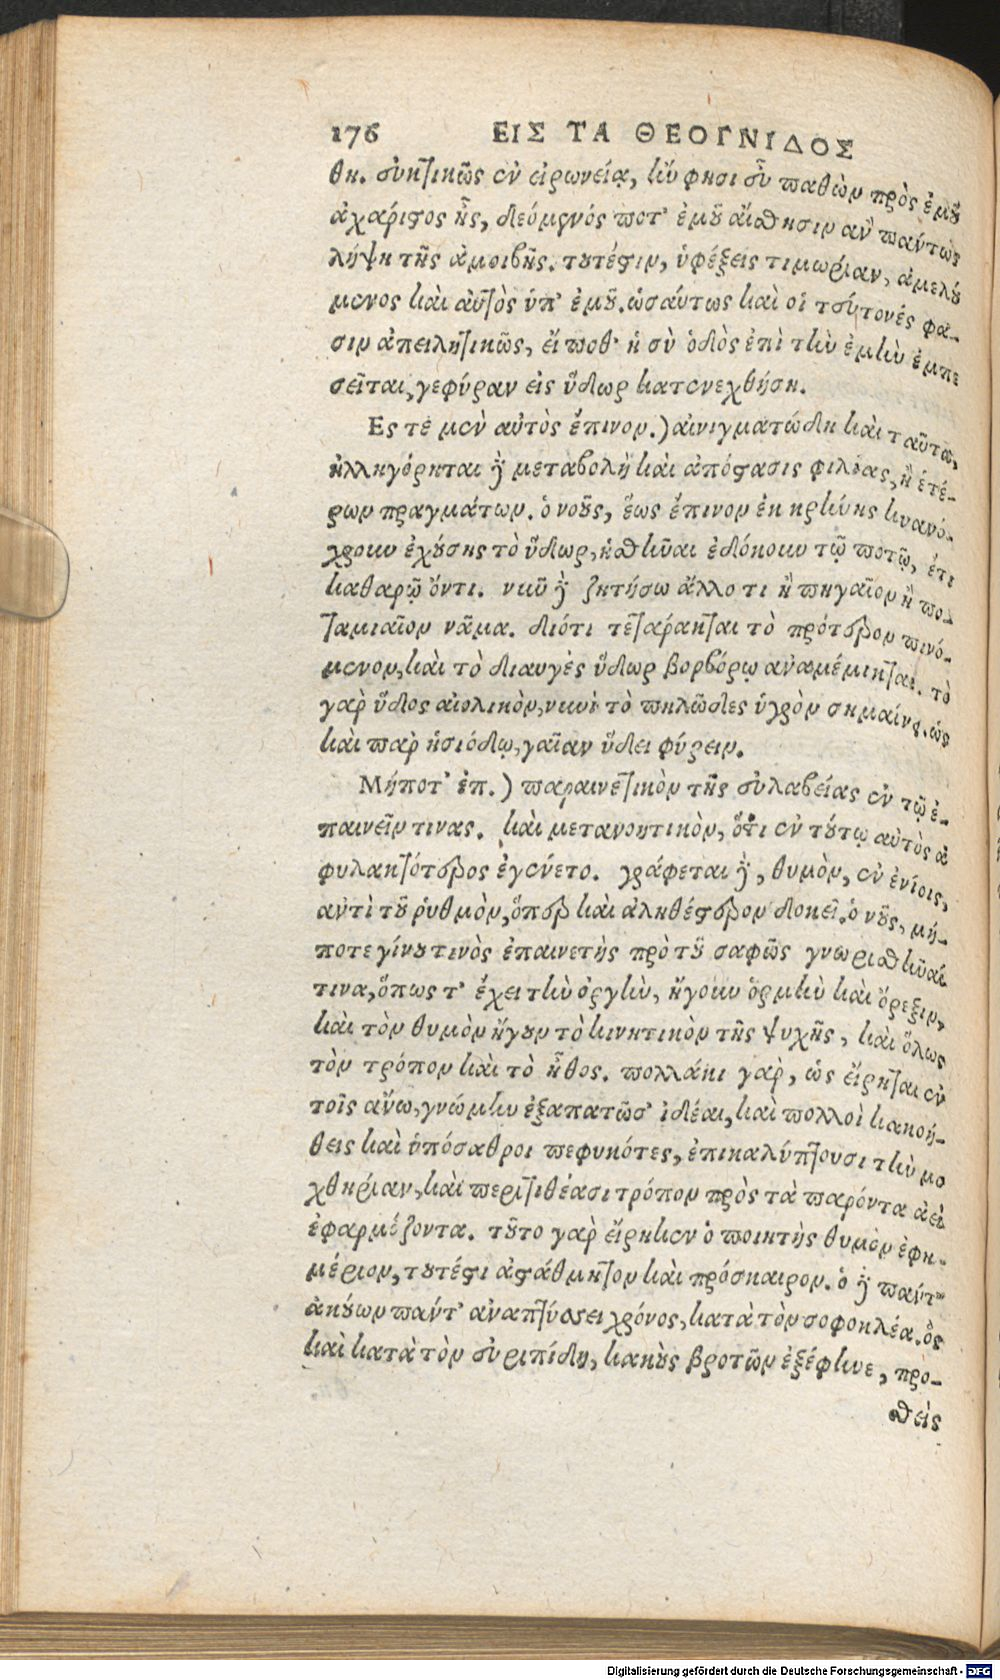 176 ΕΙΣ ΤΑ ΘΕΟΓΝΙΔΟΣ
θη. εὐκτικῶς ἐν εἰρωνείᾳ, ἵν φησι εὖ παθὼν πρὸς ἐμοῦ
ἀχάριστος ᾖς, δεόμενός ποτ' ἐμοῦ αἴσθησιν ἂν παντως
λήψῃ τῆς ἀμοιβῆς. τουτέστιν, ὑφέξεις τιμωρίαν, ἀμελού
μενος καὶ αὐτὸς ὑπ' ἐμοῦ. ὡσαύτως καὶ οἱ τεύτονές φα-
σιν ἀπειλητικῶς, εἴ ποθ' ἡ σὺ ὁδὸς ἐπὶ τὴν ἐμὴν ἐμπε
σεῖται, γεφύραν εἰς ὕδωρ κατενεχθήσῃ.
Ες τέ μεν αὐτὸς ἔπινον.) αἰνιγματώδη καὶ ταῦτα,
ἠλληγόρηται δὲ μεταβολὴ καὶ ἀπόστασις φιλίας, ἢ ἑτέ-
ρων πραγμάτων. ὁ νοῦς, ἕως ἔπινον ἐκ κρήνης κυανό-
χροιν ἐχούσης τὸ ὕδωρ, ἡσθῆναι ἐδόκουν τῷ ποτῷ, ἔτι
καθαρῷ ὄντι. νῦν δὲ ζητήσω ἄλλο τι ἢ πηγαῖον ἢ πο-
ταμιαῖον νᾶμα. διότι τετάρακται τὸ πρότερον πινό-
μενον, καὶ τὸ διαυγὲς ὕδωρ βορβόρῳ ἀναμέμικται. τὸ
γὰρ ὕδος αἰολικὸν, νυνὶ τὸ πηλῶδες ὑγρὸν σημαίνει. ὡς
καὶ παρ ἡσιόδῳ, γαῖαν ὕδει φύρειν.
Μήποτ' ἐπ.) παραινετικὸν τῆς εὐλαβείας ἐν τῷ ἐ-
παινεῖν τινας. καὶ μετανοητικὸν, ὅτι ἐν τούτῳ αὐτὸς ἀ
φυλακτότερος ἐγένετο. γράφεται δὲ, θυμὸν, ἐν ἐνίοις,
ἀντὶ τοῦ ῥυθμὸν, ὅπερ καὶ ἀληθέστερον δοκεῖ. ὁ νοῦς, μή-
ποτε γίνου τινὸς ἐπαινετὴς πρὸ τοῦ σαφῶς γνωρισθῆναί
τινα, ὅπως τ' ἔχει τὴν ὀργὴν, ἤγουν ὁρμὴν καὶ ὄρεξιν,
καὶ τὸν θυμὸν ἤγουν τὸ κινητικὸν τῆς ψυχῆς, καὶ ὅλως
τὸν τρόπον καὶ τὸ ἦθος. πολλάκι γὰρ, ὡς εἴρηται ἐν
τοῖς ἄνω, γνώμην ἐξαπατῶσ' ἰδέαι, καὶ πολλοὶ κακοή-
θεις καὶ ὑπόσαθροι πεφυκότες, ἐπικαλύπτουσι τὴν μο
χθηρίαν, καὶ περιτιθέασι τρόπον πρὸς τὰ παρόντα ἀεὶ
ἐφαρμόζοντα. τοῦτο γὰρ εἴρηκεν ὁ ποιητὴς θυμὸν ἐφη-
μέριον, τουτέστι ἀστάθμητον καὶ πρόσκαιρον. ὁ δὲ πάντ'
ἀκούων πάντ' ἀναπτύσσει χρόνος, κατὰ τὸν σοφοκλέα. ὃς
καὶ κατὰ τὸν εὐριπίδην, κακοὺς βροτῶν ἐξέφηνε, προ-
θεὶς
Digitalisierung gefördert durch die Deutsche Forschungsgemeinschaft - DFG